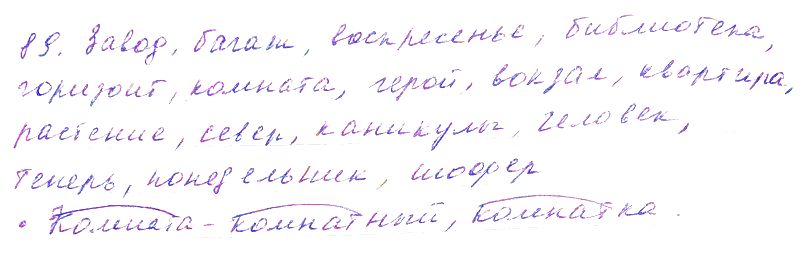 89. Завод, багаж, воскресенье, библиотека,
горизонт, комната, герой, вокзал, квартира,
растение, север, каникулы, человек,
теперь, понедельник, шофер
• Комната - комнатный, комнатка.